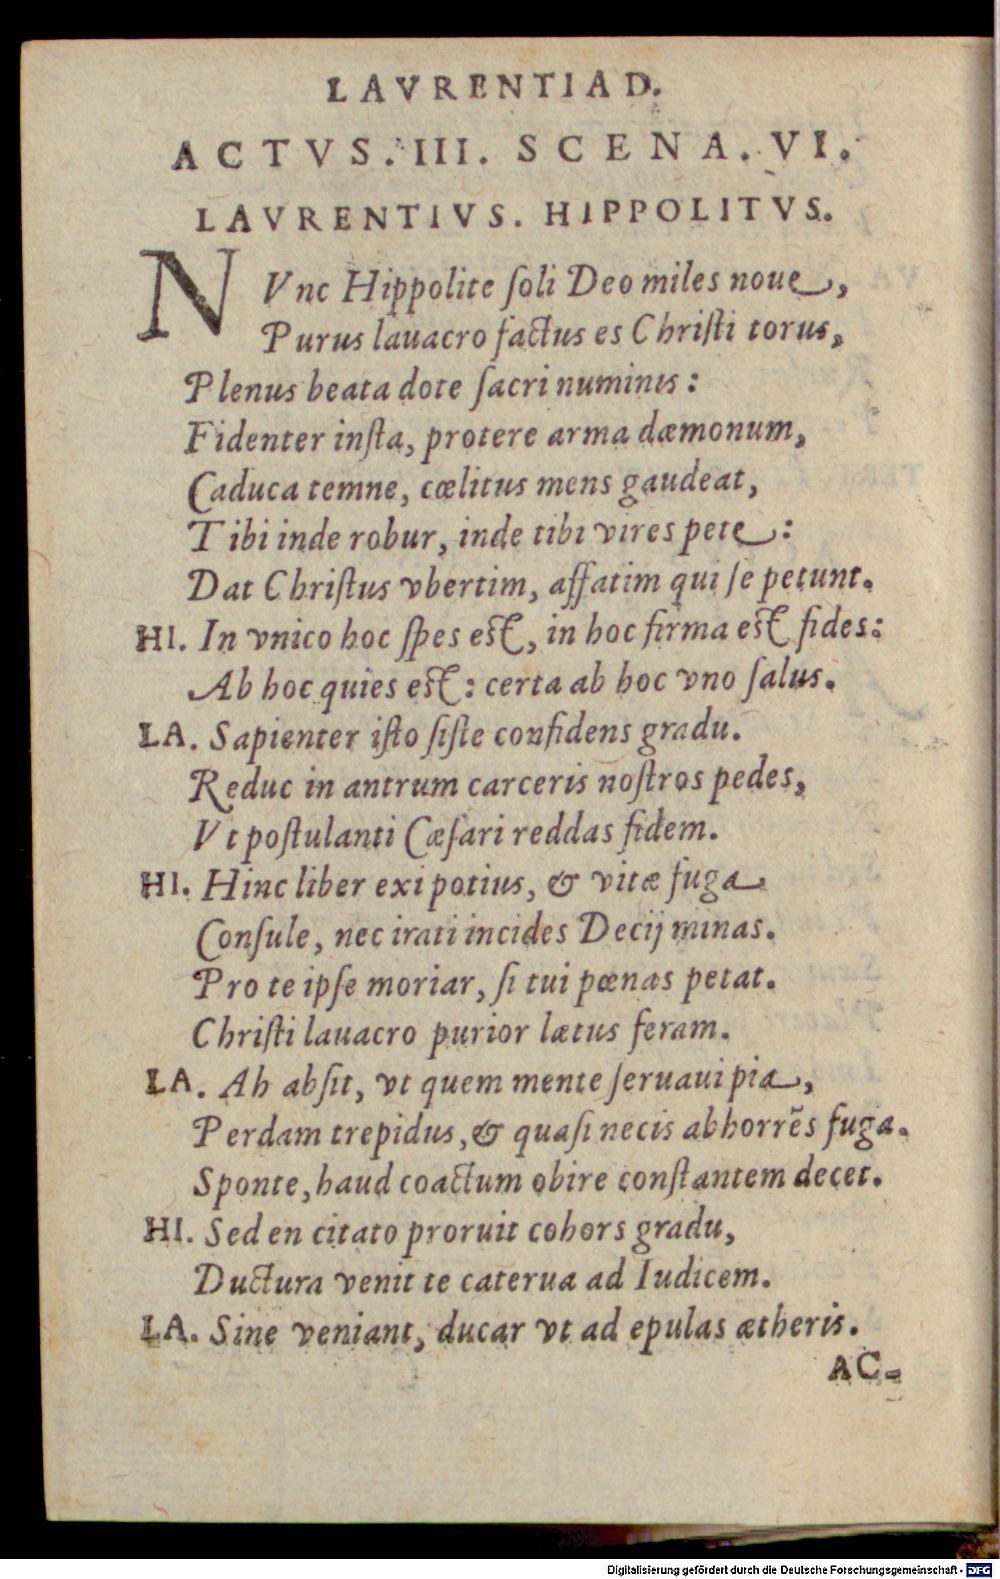 LAVRENTIAD.
ACTVS. III. SCENA. VI.
LAVRENTIVS. HIPPOLITVS.
NVnc Hippolite ſoli Deo miles noue,
Purus lauacro factus es Chriſti torus,
Plenus beata dote ſacri numinis:
Fidenter inſta, protere arma dæmonum,
Caduca temne, cœlitus mens gaudeat,
Tibi inde robur, inde tibi vires pete:
Dat Chriſtus vbertim, affatim qui ſe petunt.
HI. In vnico hoc ſpes eſt, in hoc firma eſt fides:
Ab hoc quies eſt: certa ab hoc vno ſalus.
LA. Sapienter iſto ſiſte confidens gradu.
Reduc in antrum carceris noſtros pedes,
Vt poſtulanti Cæſari reddas fidem.
HI. Hinc liber exi potius, & vitæ fuga
Conſule, nec irati incides Decij minas.
Pro te ipſe moriar, ſi tui pœnas petat.
Chriſti lauacro purior lætus feram.
LA. Ah abſit, vt quem mente ſeruaui pia,
Perdam trepidus, & quaſi necis abhorrẽs fuga.
Sponte, haud coactum obire conſtantem decet.
HI. Sed en citato proruit cohors gradu,
Ductura venit te caterua ad Iudicem.
LA. Sine veniant, ducar vt ad epulas ætheris.
AC-
Digitalisierung gefördert durch die Deutsche Forschungsgemeinschaft - DFG